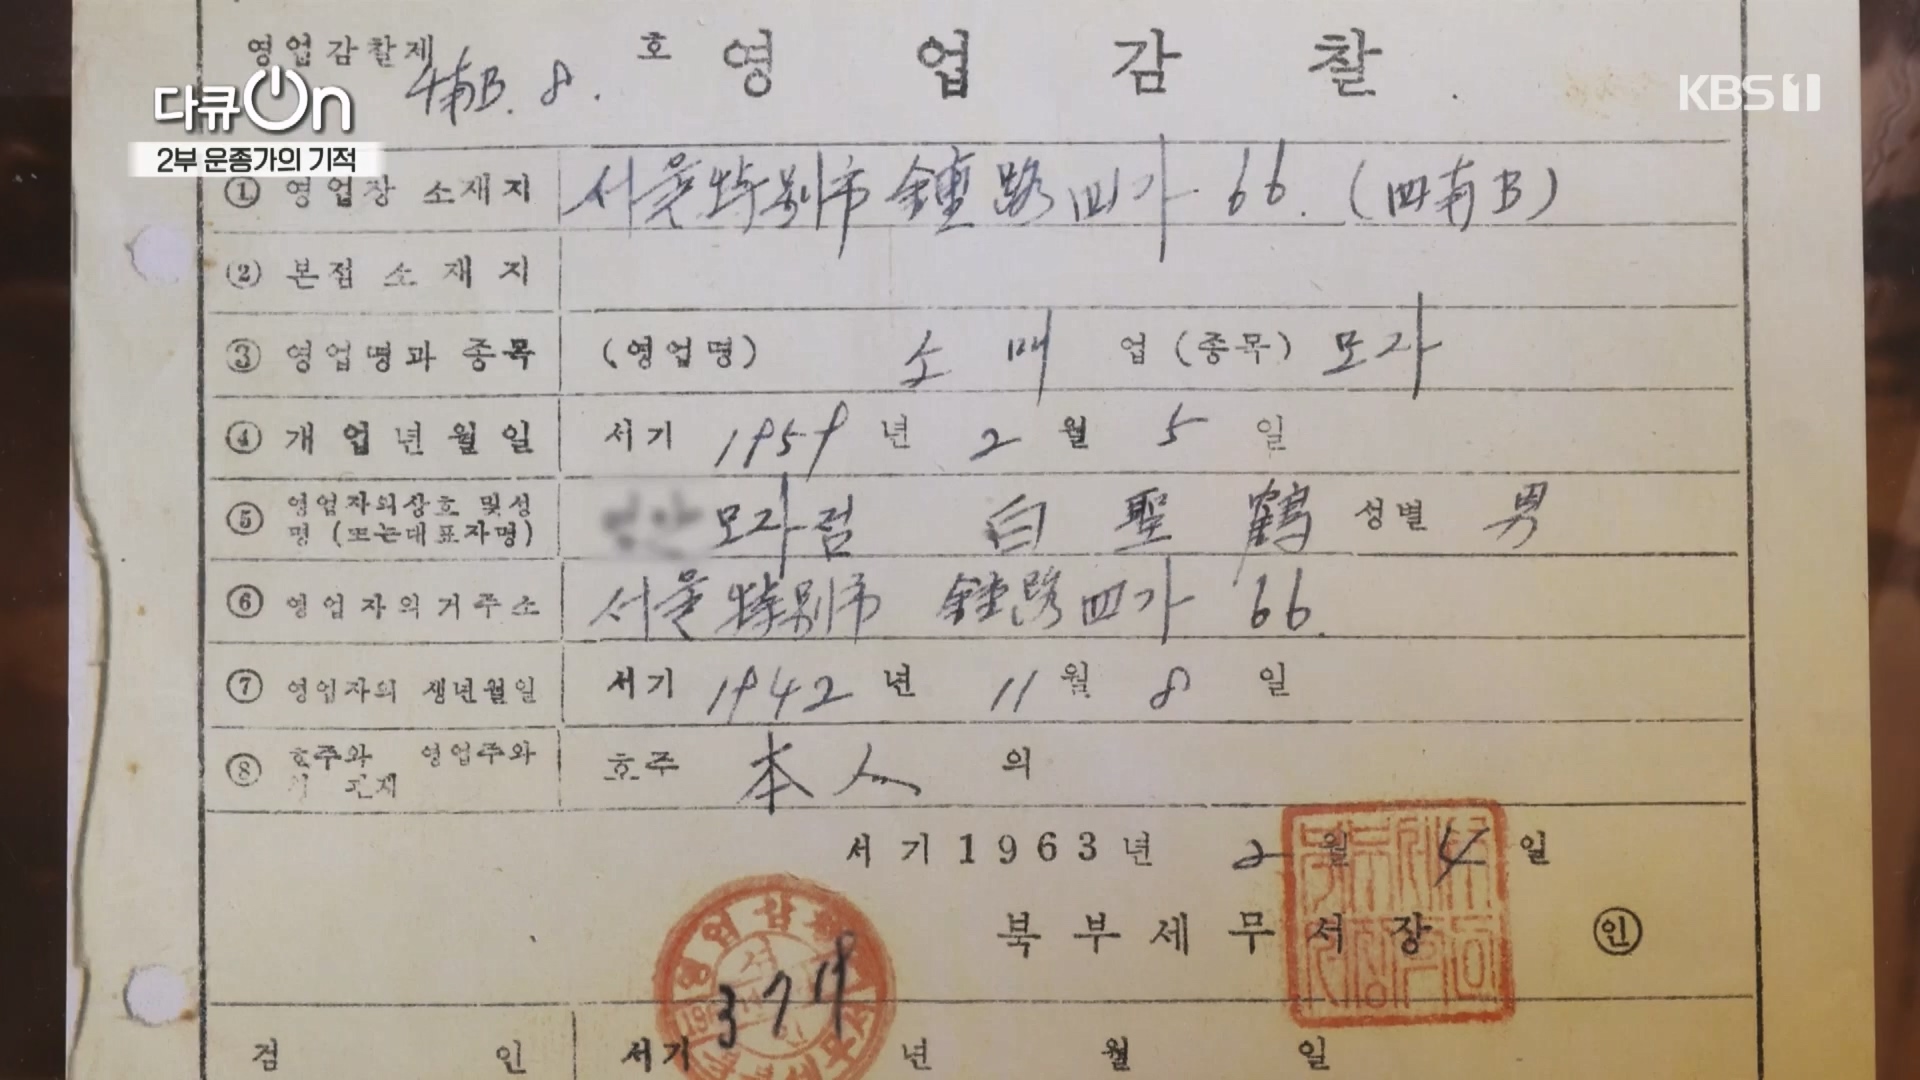 영업감찰제 4南B. 8. 호 영업감찰
KBS 1
다큐On
2부 운종가의 기적
① 영업장 소재지 서울特別市 鍾路四가 66. (四南B)
② 본점 소재지
③ 영업명과 종목 (영업명) 소매 업 (종목) 모자
④ 개업년월일 서기 1959 년 2 월 5 일
⑤ 영업자의상호 및성
명 (또는대표자명) 모자점 白聖鶴 성별 男
⑥ 영업자의거주소 서울特別市 鍾路四가 66.
⑦ 영업자의 생년월일 서기 1942 년 11 월 8 일
⑧ 호주와 영업주와
의 관계 호주 本人 의
서기 1963년 2 월 4 일
북부세무서장 인
영업감찰
379
검 인 서기 년 월 일